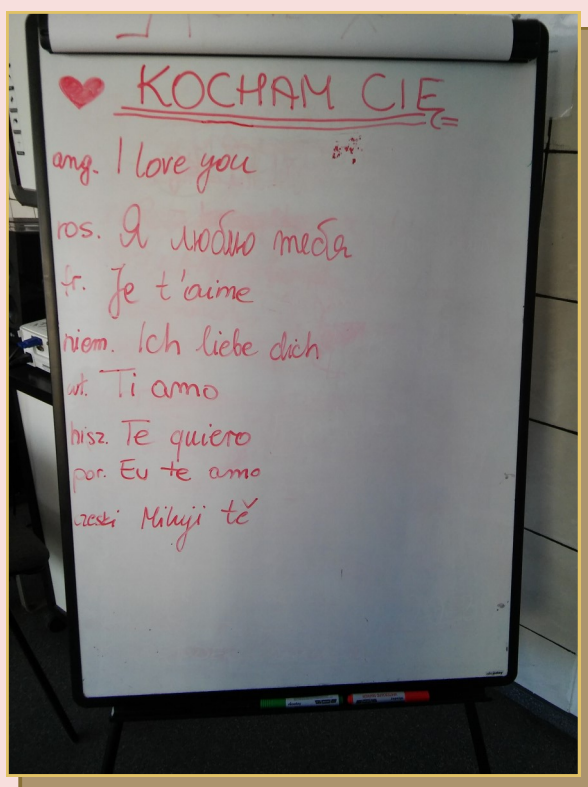 KOCHAM CIĘ
ang. I love you
ros. Я люблю тебя
fr. Je t'aime
niem. Ich liebe dich
wł. Ti amo
hisz. Te quiero
por. Eu te amo
czeski Miluji tě